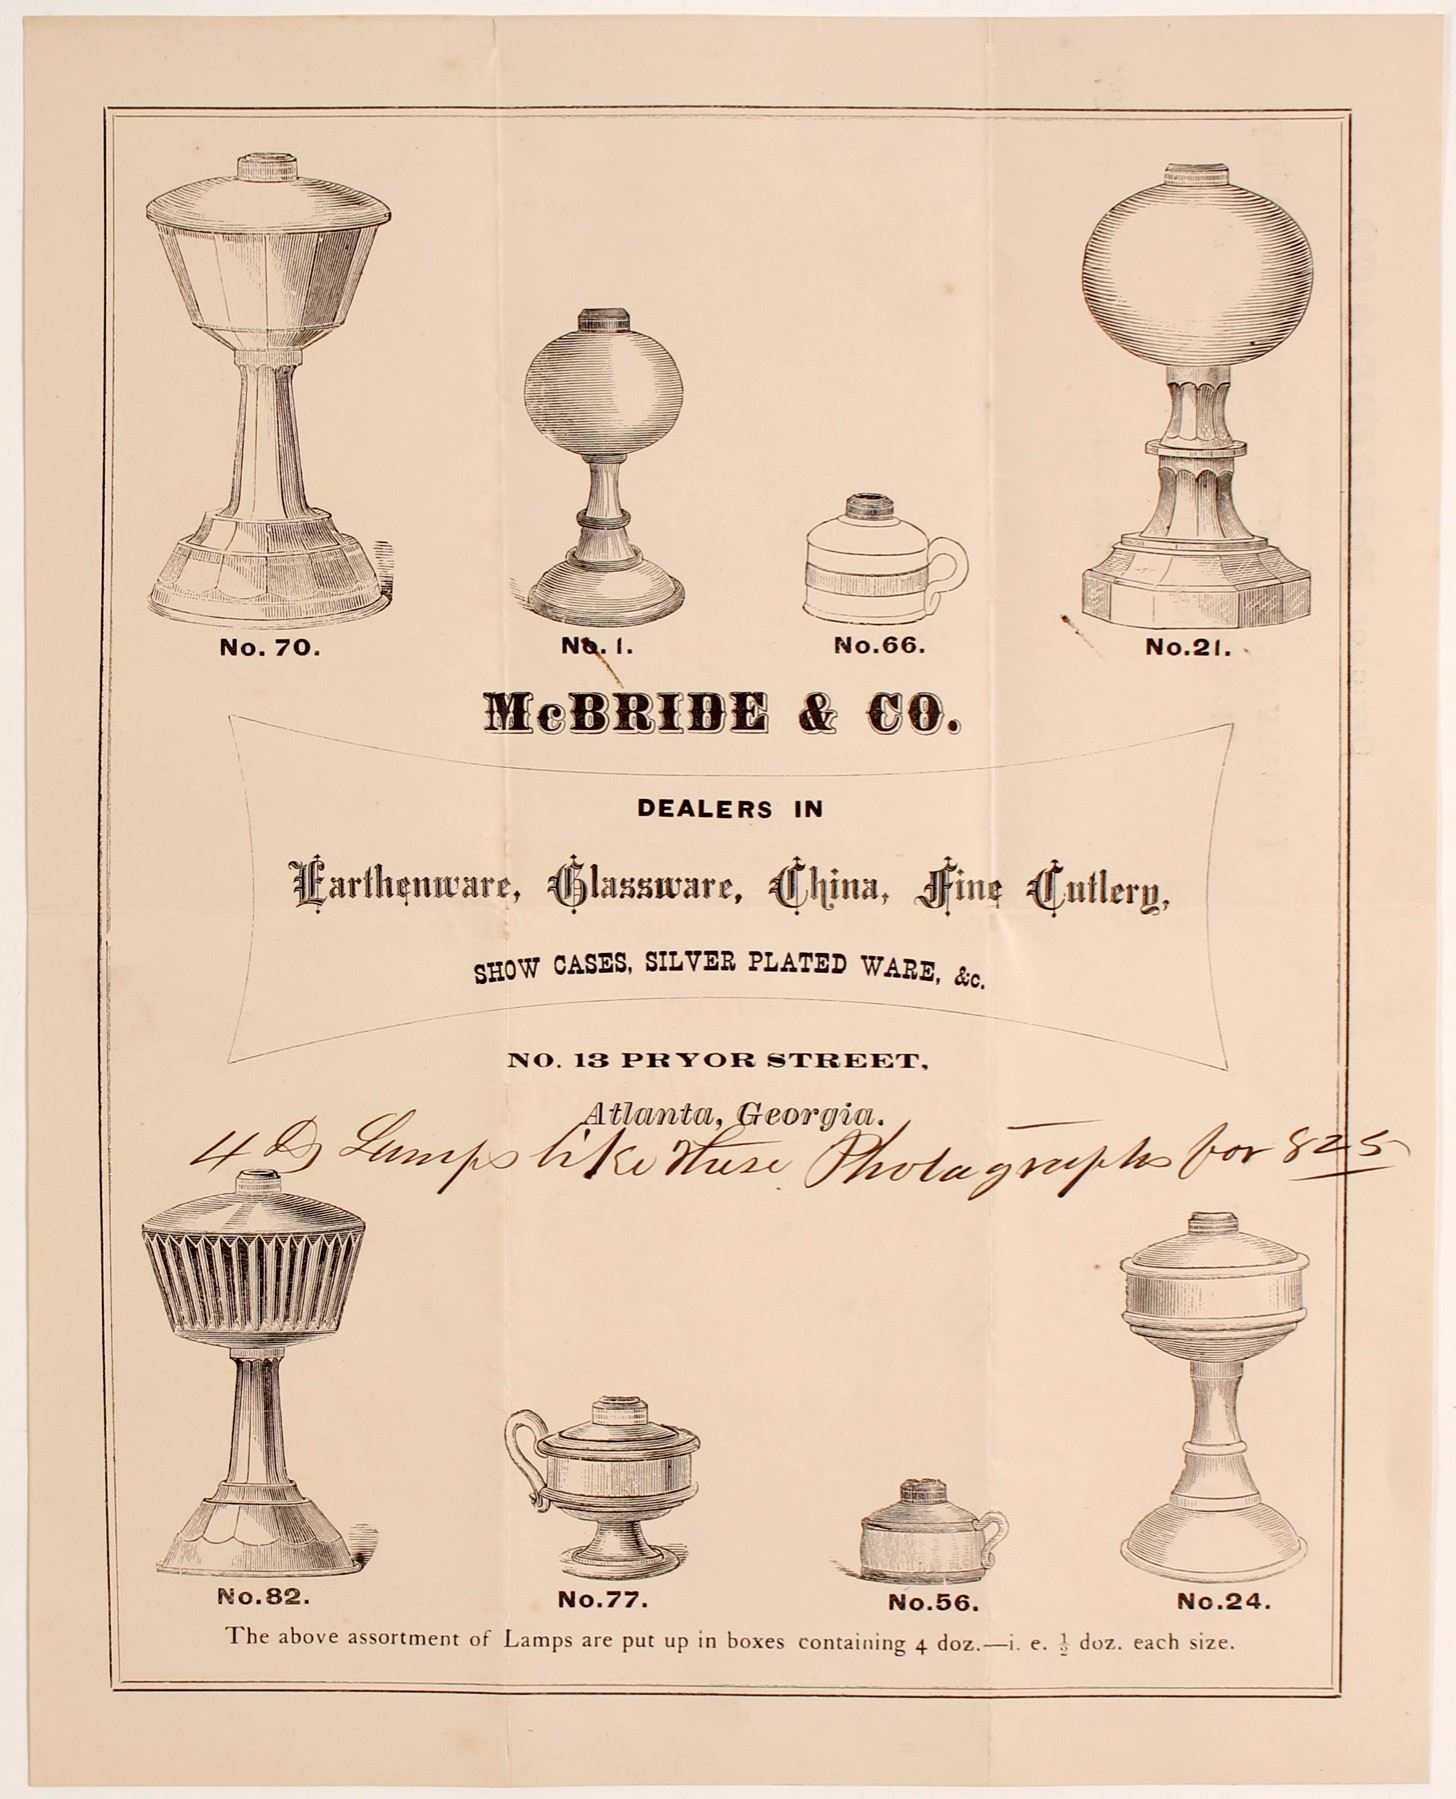 No. 70.
No. 1.
No.66.
No.21.
McBRIDE & CO.
DEALERS IN
Earthenware, Glassware, China, Fine Cutlery,
SHOW CASES, SILVER PLATED WARE, &c.
NO. 13 PRYOR STREET,
Atlanta, Georgia.
4 Dz Lamps like these Photographs for 825
No.82.
No.77.
No.56.
No.24.
The above assortment of Lamps are put up in boxes containing 4 doz.—i. e. ½ doz. each size.